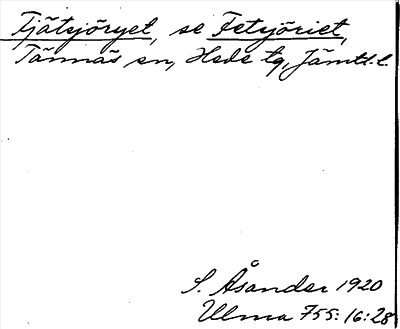 Tjätsjöryet, se Fetsjöriet,
Tännäs sn, Hede tg, Jämtl. l.
S. Åsander 1920
Ulma 755:16:28